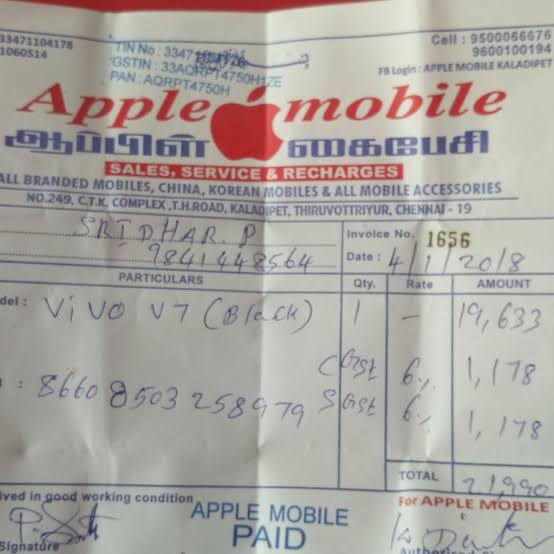 33471104178
1060514
TIN No : 3347
GSTIN : 33AQRPT4750H1ZE
PAN : AQRPT4750H
Cell : 9500066676
9600100194
FB Login : APPLE MOBILE KALADIPET
Apple mobile
ஆப்பிள் கைபேசி
SALES, SERVICE & RECHARGES
ALL BRANDED MOBILES, CHINA, KOREAN MOBILES & ALL MOBILE ACCESSORIES
NO.249, C.T.K. COMPLEX ,T.H.ROAD, KALADIPET, THIRUVOTTRIYUR, CHENNAI - 19
SRIDHAR. P
9841448564
Invoice No. 1656
Date : 4/1/2018
PARTICULARS Qty. Rate AMOUNT
del : ViVO V7 (Black) 1 - 19,633
CGST 6% 1,178
: 8660 8503 258979 SGST 6% 1,178
TOTAL 21,990
ived in good working condition
For APPLE MOBILE
APPLE MOBILE
PAID
Signature